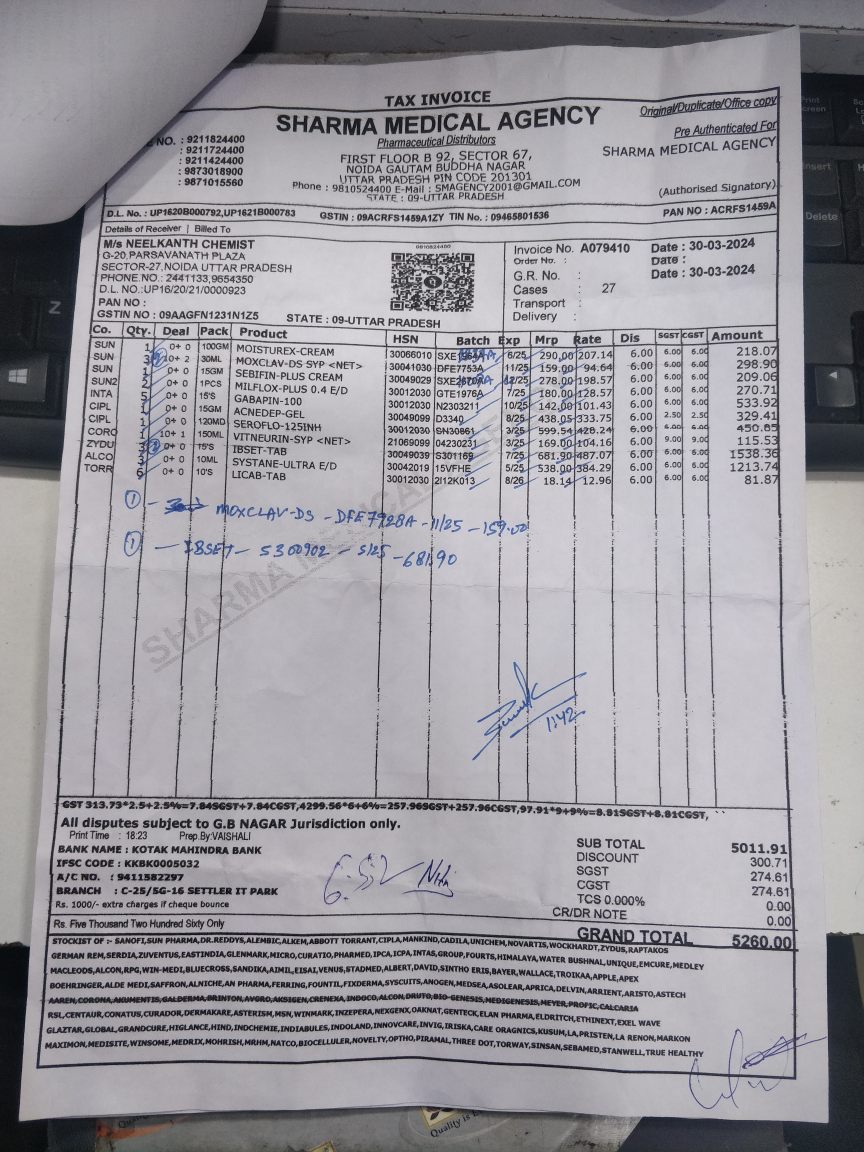 TAX INVOICE
Original/Duplicate/Office copy
SHARMA MEDICAL AGENCY
Pharmaceutical Distributors
Pre Authenticated For
SHARMA MEDICAL AGENCY
(Authorised Signatory)
E NO. : 9211824400
: 9211724400
: 9211424400
: 9873018900
: 9871015560
FIRST FLOOR B 92, SECTOR 67,
NOIDA GAUTAM BUDDHA NAGAR
UTTAR PRADESH PIN CODE 201301
Phone : 9810524400 E-Mail : SMAGENCY2001@GMAIL.COM
STATE : 09-UTTAR PRADESH
D.L. No. : UP1620B000792,UP1621B000783 GSTIN : 09ACRFS1459A1ZY TIN No. : 09465801536 PAN NO : ACRFS1459A
Details of Receiver | Billed To
M/s NEELKANTH CHEMIST
G-20,PARSAVANATH PLAZA
SECTOR-27,NOIDA UTTAR PRADESH
PHONE.NO.: 2441133,9654350
D.L. NO.:UP16/20/21/0000923
PAN NO :
GSTIN NO : 09AAGFN1231N1Z5 STATE : 09-UTTAR PRADESH
9810524400
Invoice No. A079410 Date : 30-03-2024
Order No. : Date :
G.R. No. : Date : 30-03-2024
Cases : 27
Transport :
Delivery :
Co. Qty. Deal Pack Product HSN Batch Exp Mrp Rate Dis SGST CGST Amount
SUN 1 0+ 0 100GM MOISTUREX-CREAM 30066010 6/25 290.00 207.14 6.00 6.00 6.00 218.07
SUN 3 10+ 2 30ML MOXCLAV-DS SYP <NET> 30041030 DFE7753A 11/25 159.00 94.64 6.00 6.00 6.00 298.90
SUN 1 0+ 0 15GM SEBIFIN-PLUS CREAM 30049029 12/25 278.00 198.57 6.00 6.00 6.00 209.06
SUN2 2 0+ 0 1PCS MILFLOX-PLUS 0.4 E/D 30012030 GTE1976A 7/25 180.00 128.57 6.00 6.00 6.00 270.71
INTA 5 0+ 0 15'S GABAPIN-100 30012030 N2303211 10/25 142.00 101.43 6.00 6.00 6.00 533.92
CIPL 1 0+ 0 15GM ACNEDEP-GEL 30049099 D3340 8/25 438.05 333.75 6.00 2.50 2.50 329.41
CIPL 1 0+ 0 120MD SEROFLO-125INH 30012030 SN30861 3/25 599.54 428.24 6.00 6.00 6.00 450.85
CORO 1 10+ 1 150ML VITNEURIN-SYP <NET> 21069099 04230231 3/25 169.00 104.16 6.00 9.00 9.00 115.53
ZYDU 3 0+ 0 15'S IBSET-TAB 30049039 S301169 7/25 681.90 487.07 6.00 6.00 6.00 1538.36
ALCO 3 0+ 0 10ML SYSTANE-ULTRA E/D 30042019 15VFHE 5/25 538.00 384.29 6.00 6.00 6.00 1213.74
TORR 6 0+ 0 10'S LICAB-TAB 30012030 2I12K013 8/26 18.14 12.96 6.00 6.00 6.00 81.87
① - MOXCLAV-DS - DFE7928A - 11/25 - 159.00
① - IBSET - S300902 - 5/25 - 681.90
SHARMA MEDICAL AGENCY
1142
GST 313.73*2.5+2.5%=7.84SGST+7.84CGST,4299.56*6+6%=257.96SGST+257.96CGST,97.91*9+9%=8.81SGST+8.81CGST,
All disputes subject to G.B NAGAR Jurisdiction only.
Print Time : 18:23 Prep.By:VAISHALI
BANK NAME : KOTAK MAHINDRA BANK
IFSC CODE : KKBK0005032
A/C NO. : 9411582297
BRANCH : C-25/5G-16 SETTLER IT PARK
Rs. 1000/- extra charges if cheque bounce
SUB TOTAL 5011.91
DISCOUNT 300.71
SGST 274.61
CGST 274.61
TCS 0.000% 0.00
CR/DR NOTE 0.00
Rs. Five Thousand Two Hundred Sixty Only
GRAND TOTAL 5260.00
STOCKIST OF :- SANOFI,SUN PHARMA,DR.REDDYS,ALEMBIC,ALKEM,ABBOTT TORRANT,CIPLA,MANKIND,CADILA,UNICHEM,NOVARTIS,WOCKHARDT,ZYDUS,RAPTAKOS
GERMAN REM,SERDIA,ZUVENTUS,EASTINDIA,GLENMARK,MICRO,CURATIO,PHARMED,IPCA,ICPA,INTAS,GROUP,FOURTS,HIMALAYA,WATER BUSHNAL,UNIQUE,EMCURE,MEDLEY
MACLEODS,ALCON,RPG,WIN-MEDI,BLUECROSS,SANDIKA,AIMIL,EISAI,VENUS,STADMED,ALBERT,DAVID,SINTHO ERIS,BAYER,WALLACE,TROIKAA,APPLE,APEX
BOEHRINGER,ALDE MEDI,SAFFRON,ALNICHE,AN PHARMA,FERRING,FOUNTIL,FIXDERMA,SYSCUITS,ANOGEN,MEDSEA,ASOLEAR,APRICA,DELVIN,ARRIENT,ARISTO,ASTECH
AAREN,CORONA,AKUMENTIS,GALDERMA,BRINTON,AVGRO,AKSIGEN,CRENEXA,INDOCO,ALCON,DRUTO,BIO-GENESIS,MEDIGENESIS,MEYER,PROFIC,CALCARIA
RSL,CENTAUR,CONATUS,CURADOR,DERMAKARE,ASTERISM,MSN,WINMARK,INZEPERA,NEXGENX,OAKNAT,GENTECK,ELAN PHARMA,ELDRITCH,ETHINEXT,EXEL WAVE
GLAZTAR,GLOBAL,GRANDCURE,HIGLANCE,HIND,INDCHEMIE,INDIABULES,INDOLAND,INNOVCARE,INVIG,IRISKA,CARE ORAGNICS,KUSUM,LA,PRISTEN,LA RENON,MARKON
MAXIMON,MEDISITE,WINSOME,MEDRIX,MOHRISH,MRHM,NATCO,BIOCELLULER,NOVELTY,OPTHO,PIRAMAL,THREE DOT,TORWAY,SINSAN,SEBAMED,STANWELL,TRUE HEALTHY
Insert
Delete
Z
Quality is